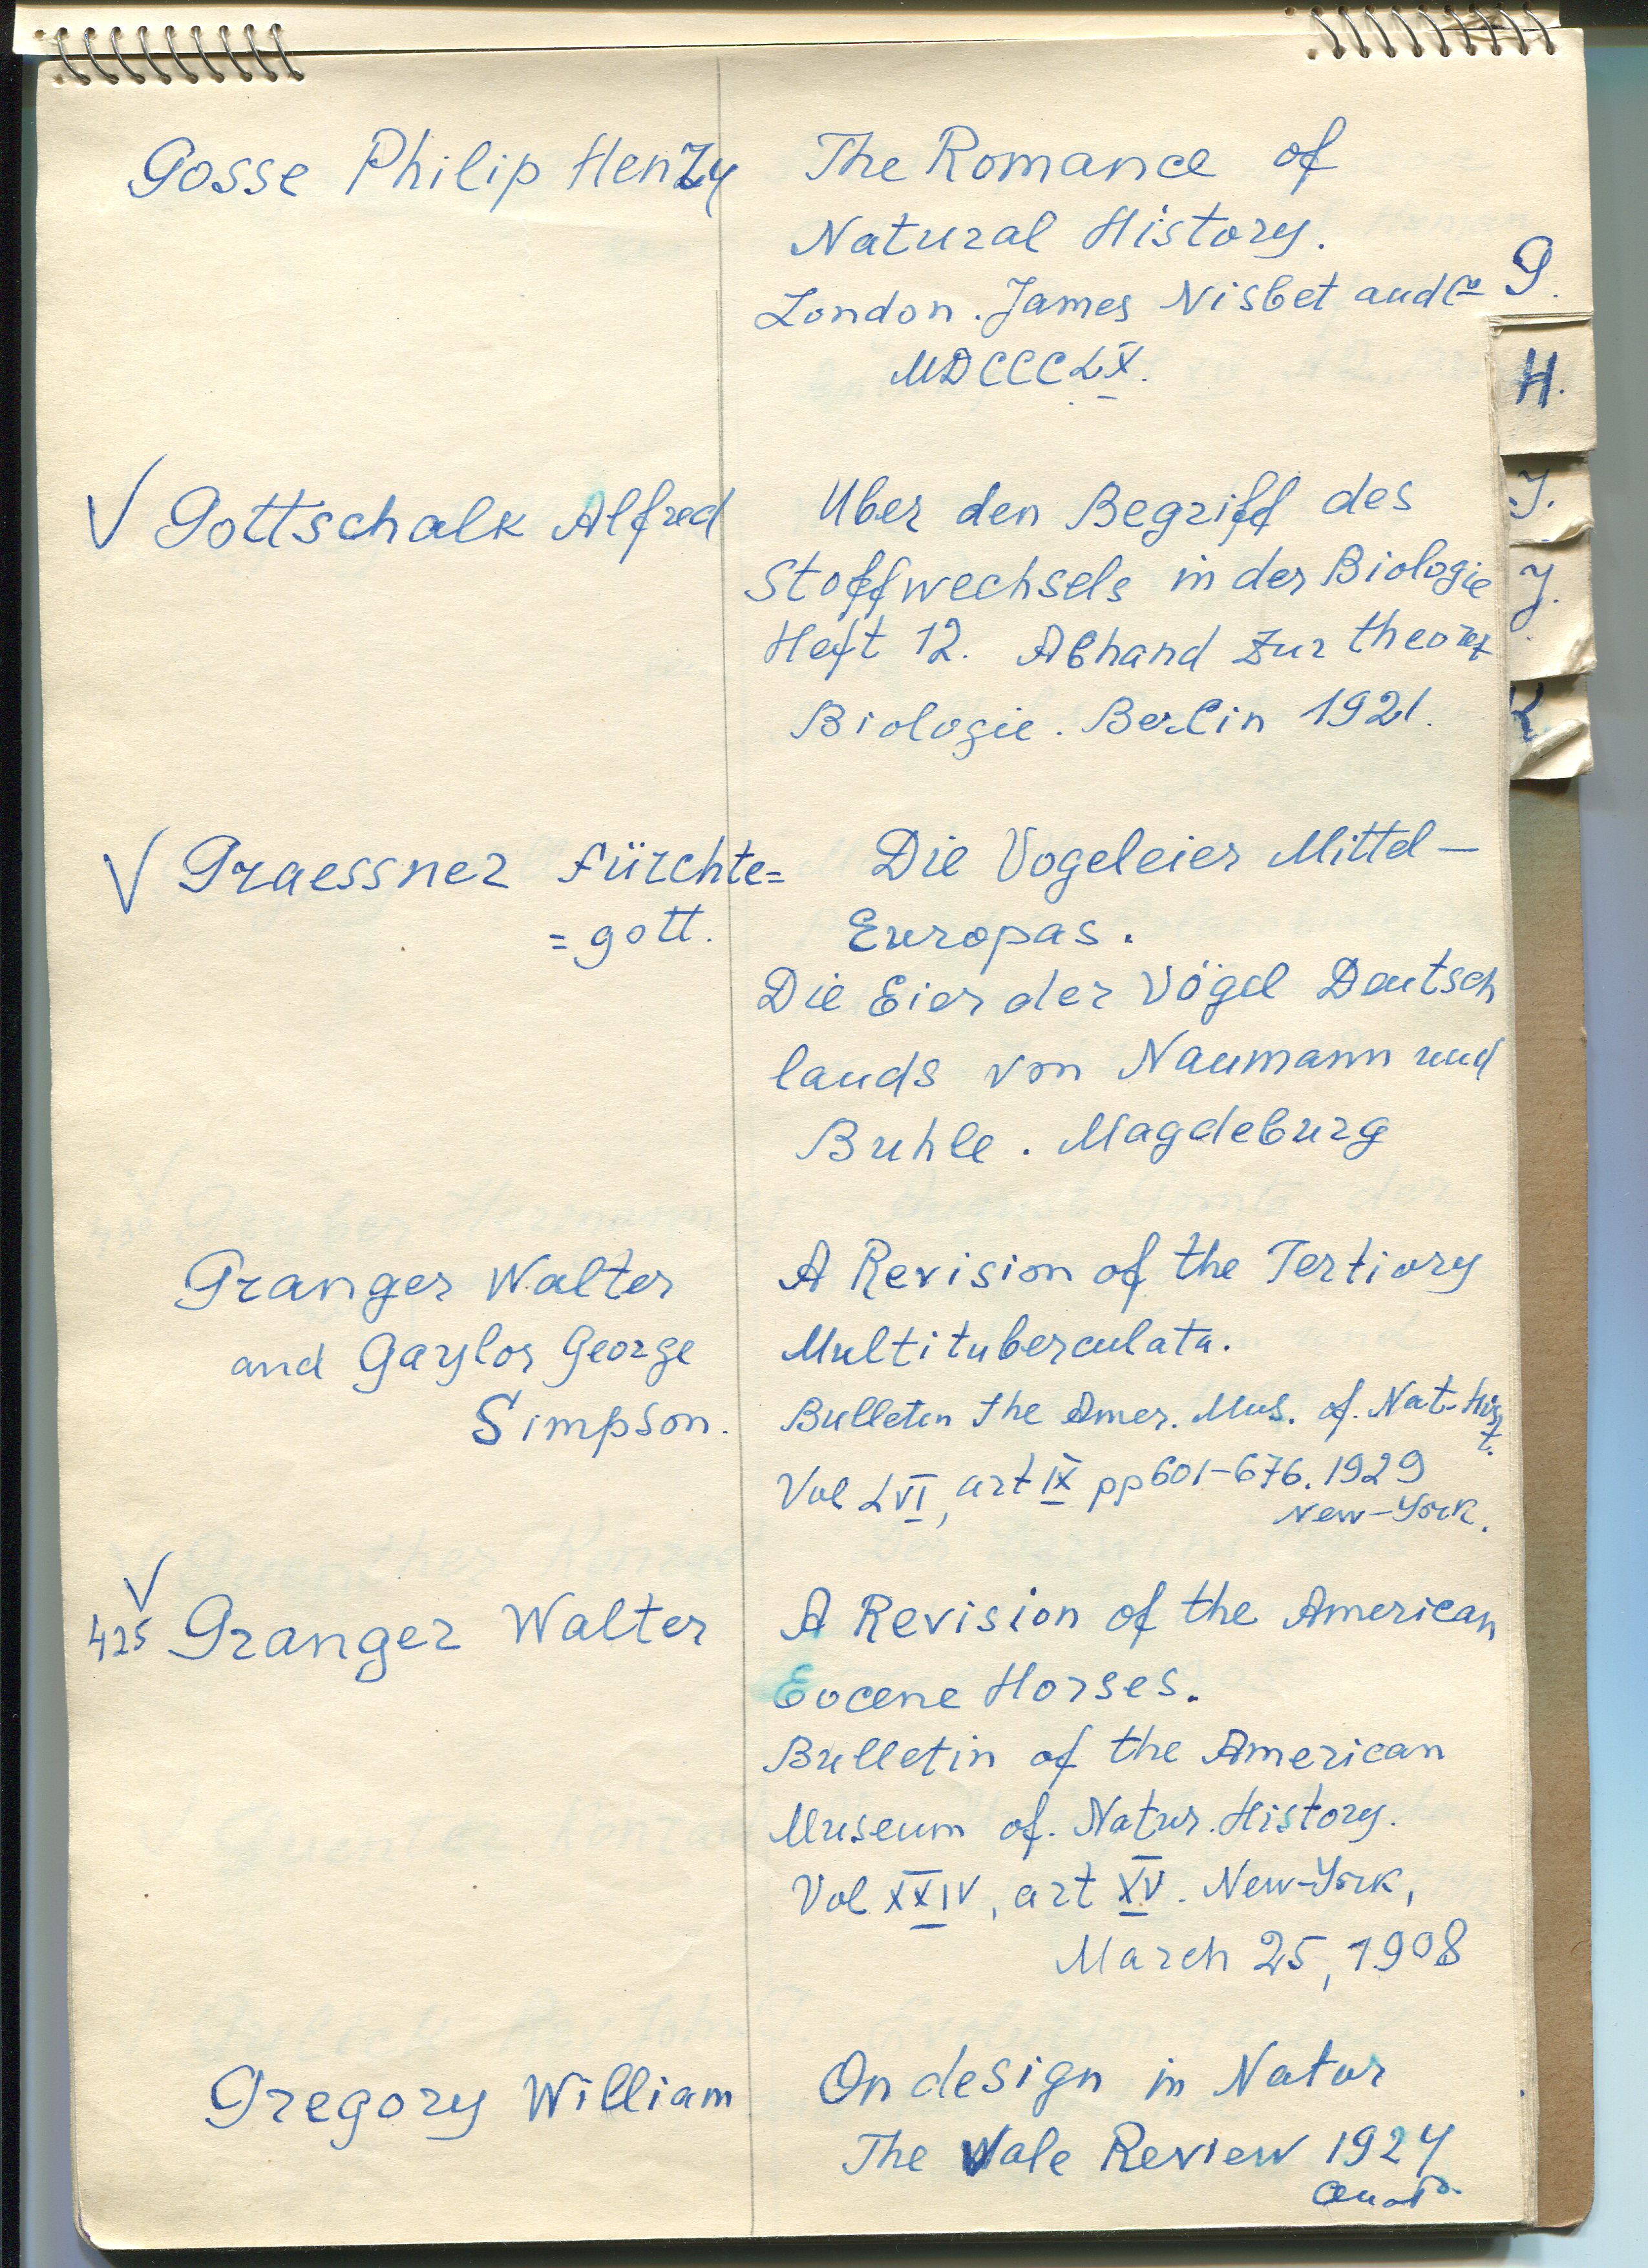 Gosse Philip Henry
The Romance of
Natural History.
London. James Nisbet and Co
MDCCCLX.
G.
H.
J.
J.
K
V Gottschalk Alfred
Uber den Begriff des
Stoffwechsels in der Biologie
Heft 12. Abhand zur theoret
Biologie. Berlin 1921.
V Graessner Fürchte=
=gott.
Die Vogeleier Mittel-
Europas.
Die Eier der Vögel Deutsch
lands von Naumann und
Buhle. Magdeburg
Granger Walter
and Gaylor George
Simpson.
A Revision of the Tertiary
Multituberculata.
Bulletin the Amer. Mus. of. Nat-Hist.
Vol LVI, art IX pp 601-676. 1929
New-York.
V
425 Granger Walter
A Revision of the American
Eocene Horses.
Bulletin of the American
Museum of. Natur. History.
Vol XXIV, art XV. New-York,
March 25, 1908
Gregory William
On design in Natur
The Yale Review 1924